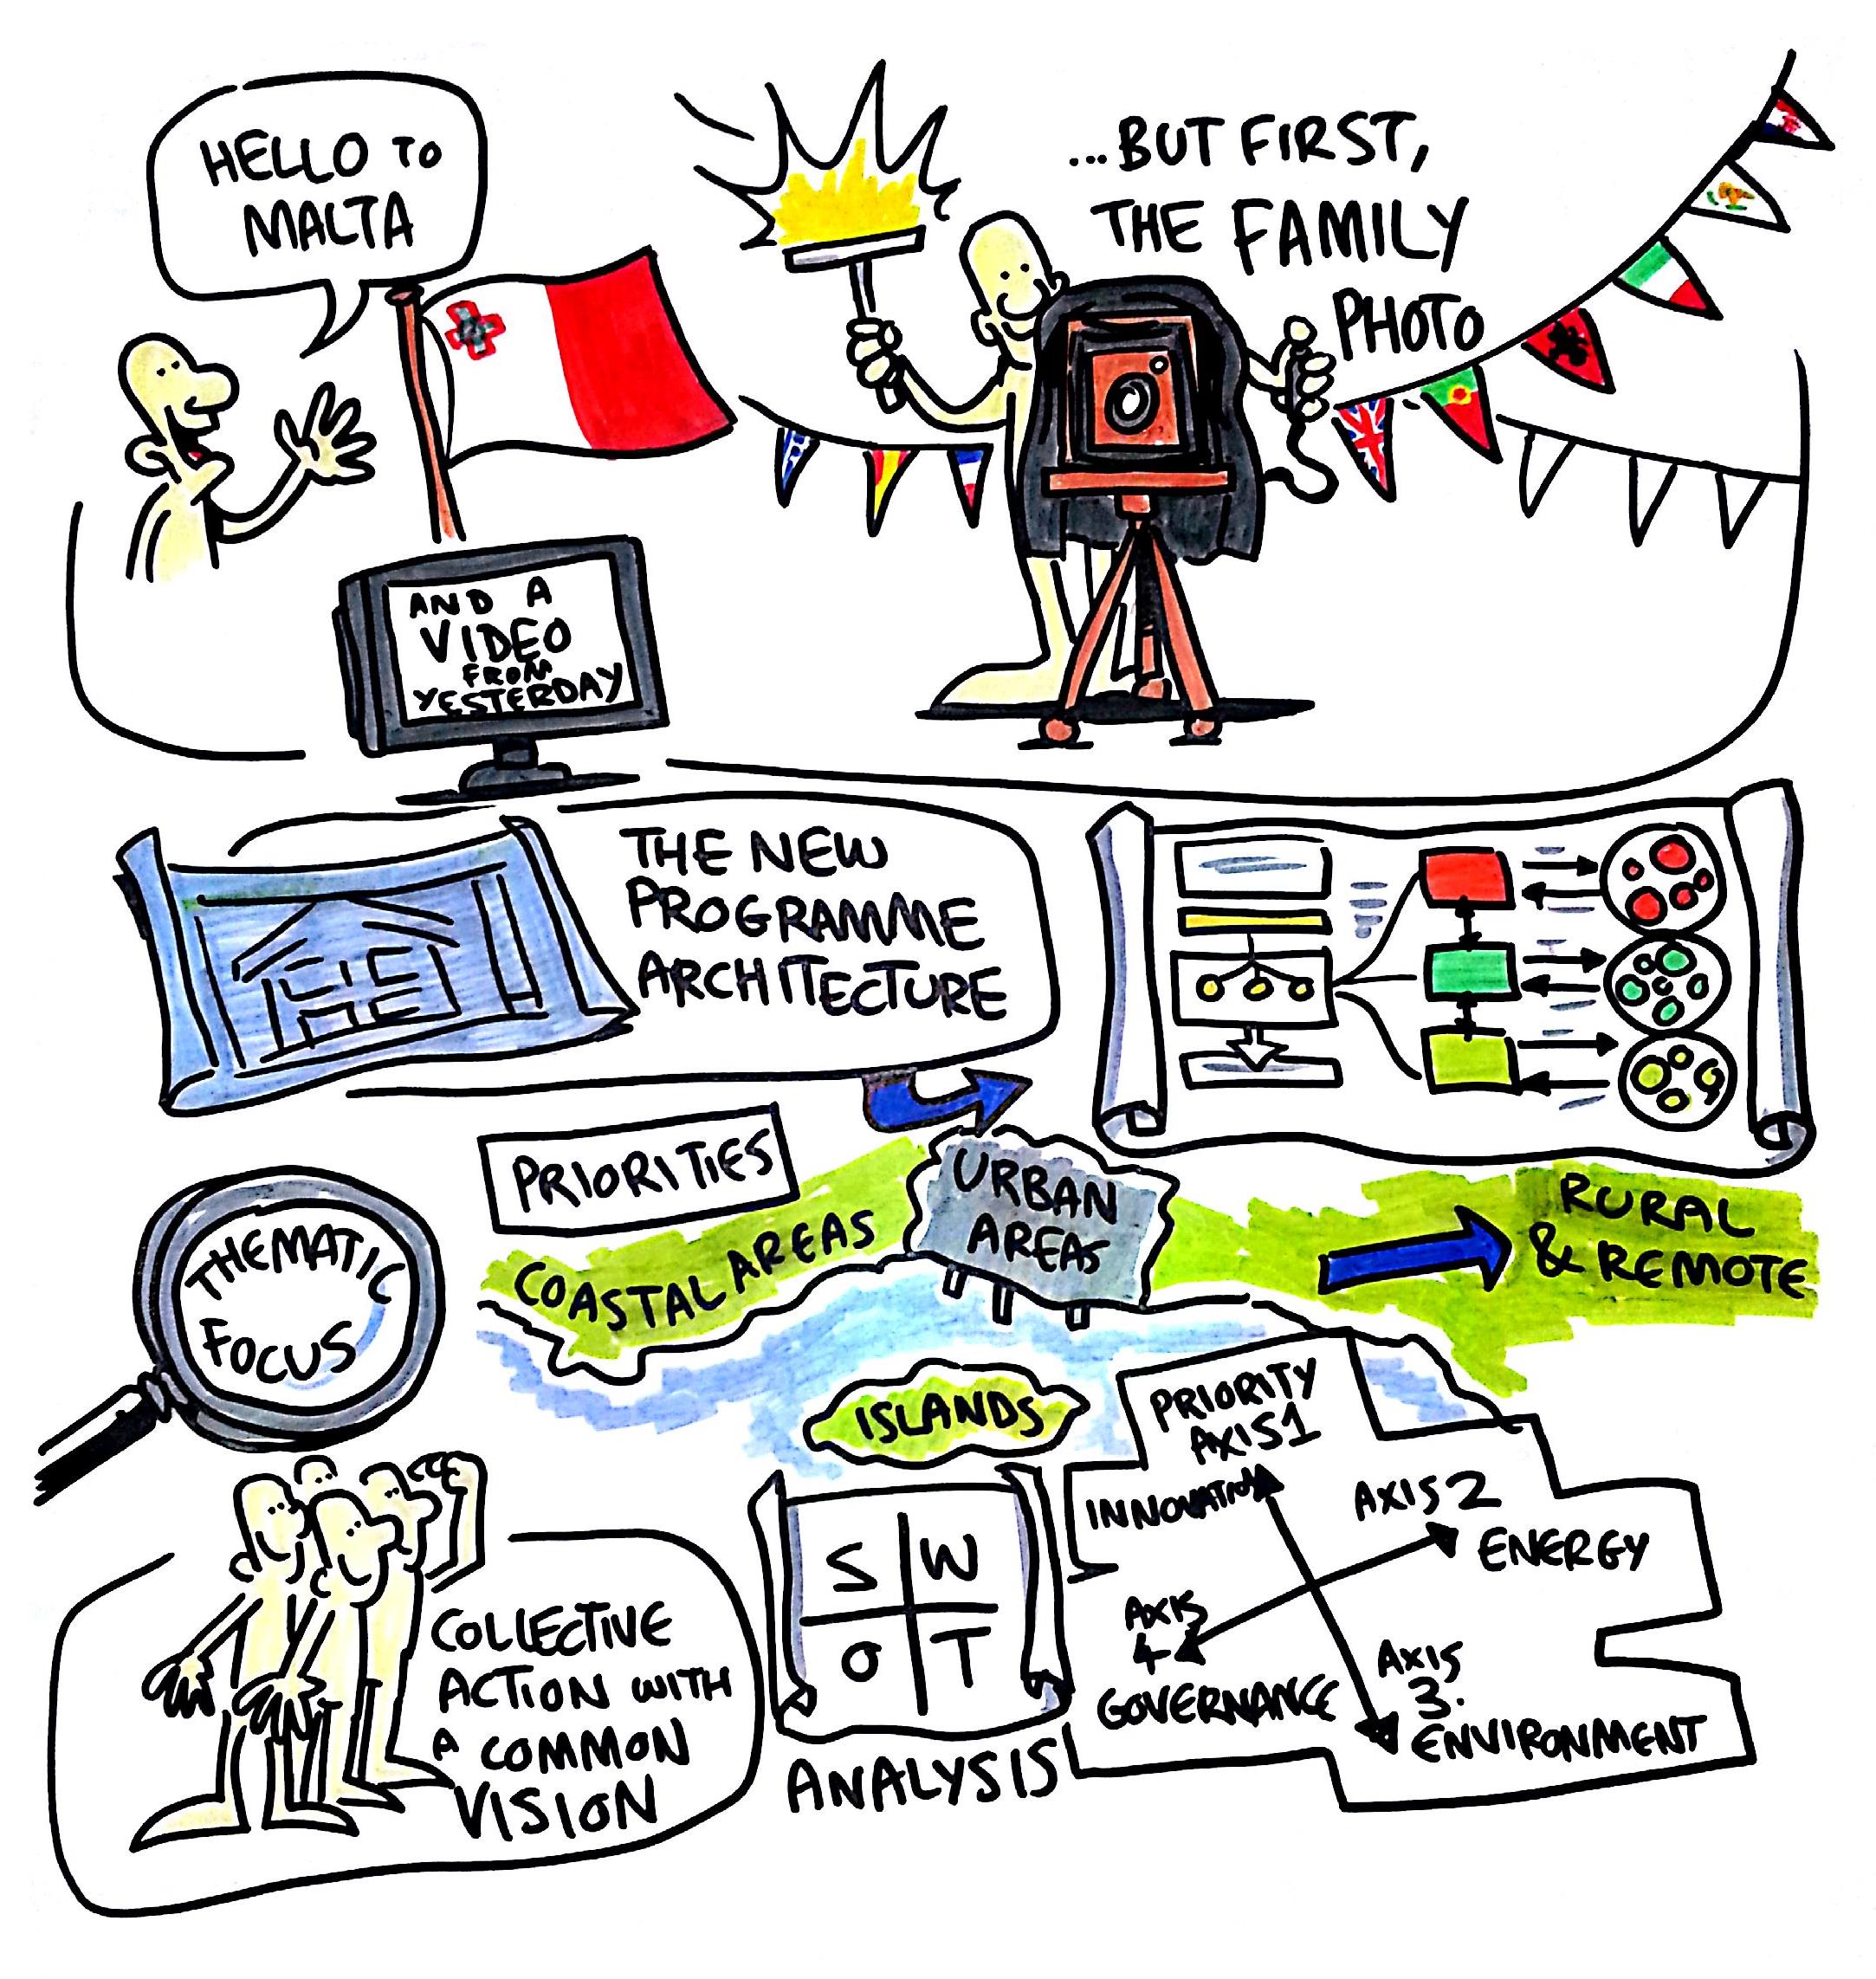 HELLO TO
MALTA
...BUT FIRST,
THE FAMILY
PHOTO
AND A
VIDEO
FROM
YESTERDAY
THE NEW
PROGRAMME
ARCHITECTURE
PRIORITIES
THEMATIC
FOCUS
COASTAL AREAS
URBAN
AREAS
RURAL
& REMOTE
ISLANDS
COLLECTIVE
ACTION WITH
A COMMON
VISION
S W
O T
ANALYSIS
PRIORITY
AXIS 1
INNOVATION
AXIS 2
ENERGY
AXIS
4
GOVERNANCE
AXIS
3.
ENVIRONMENT